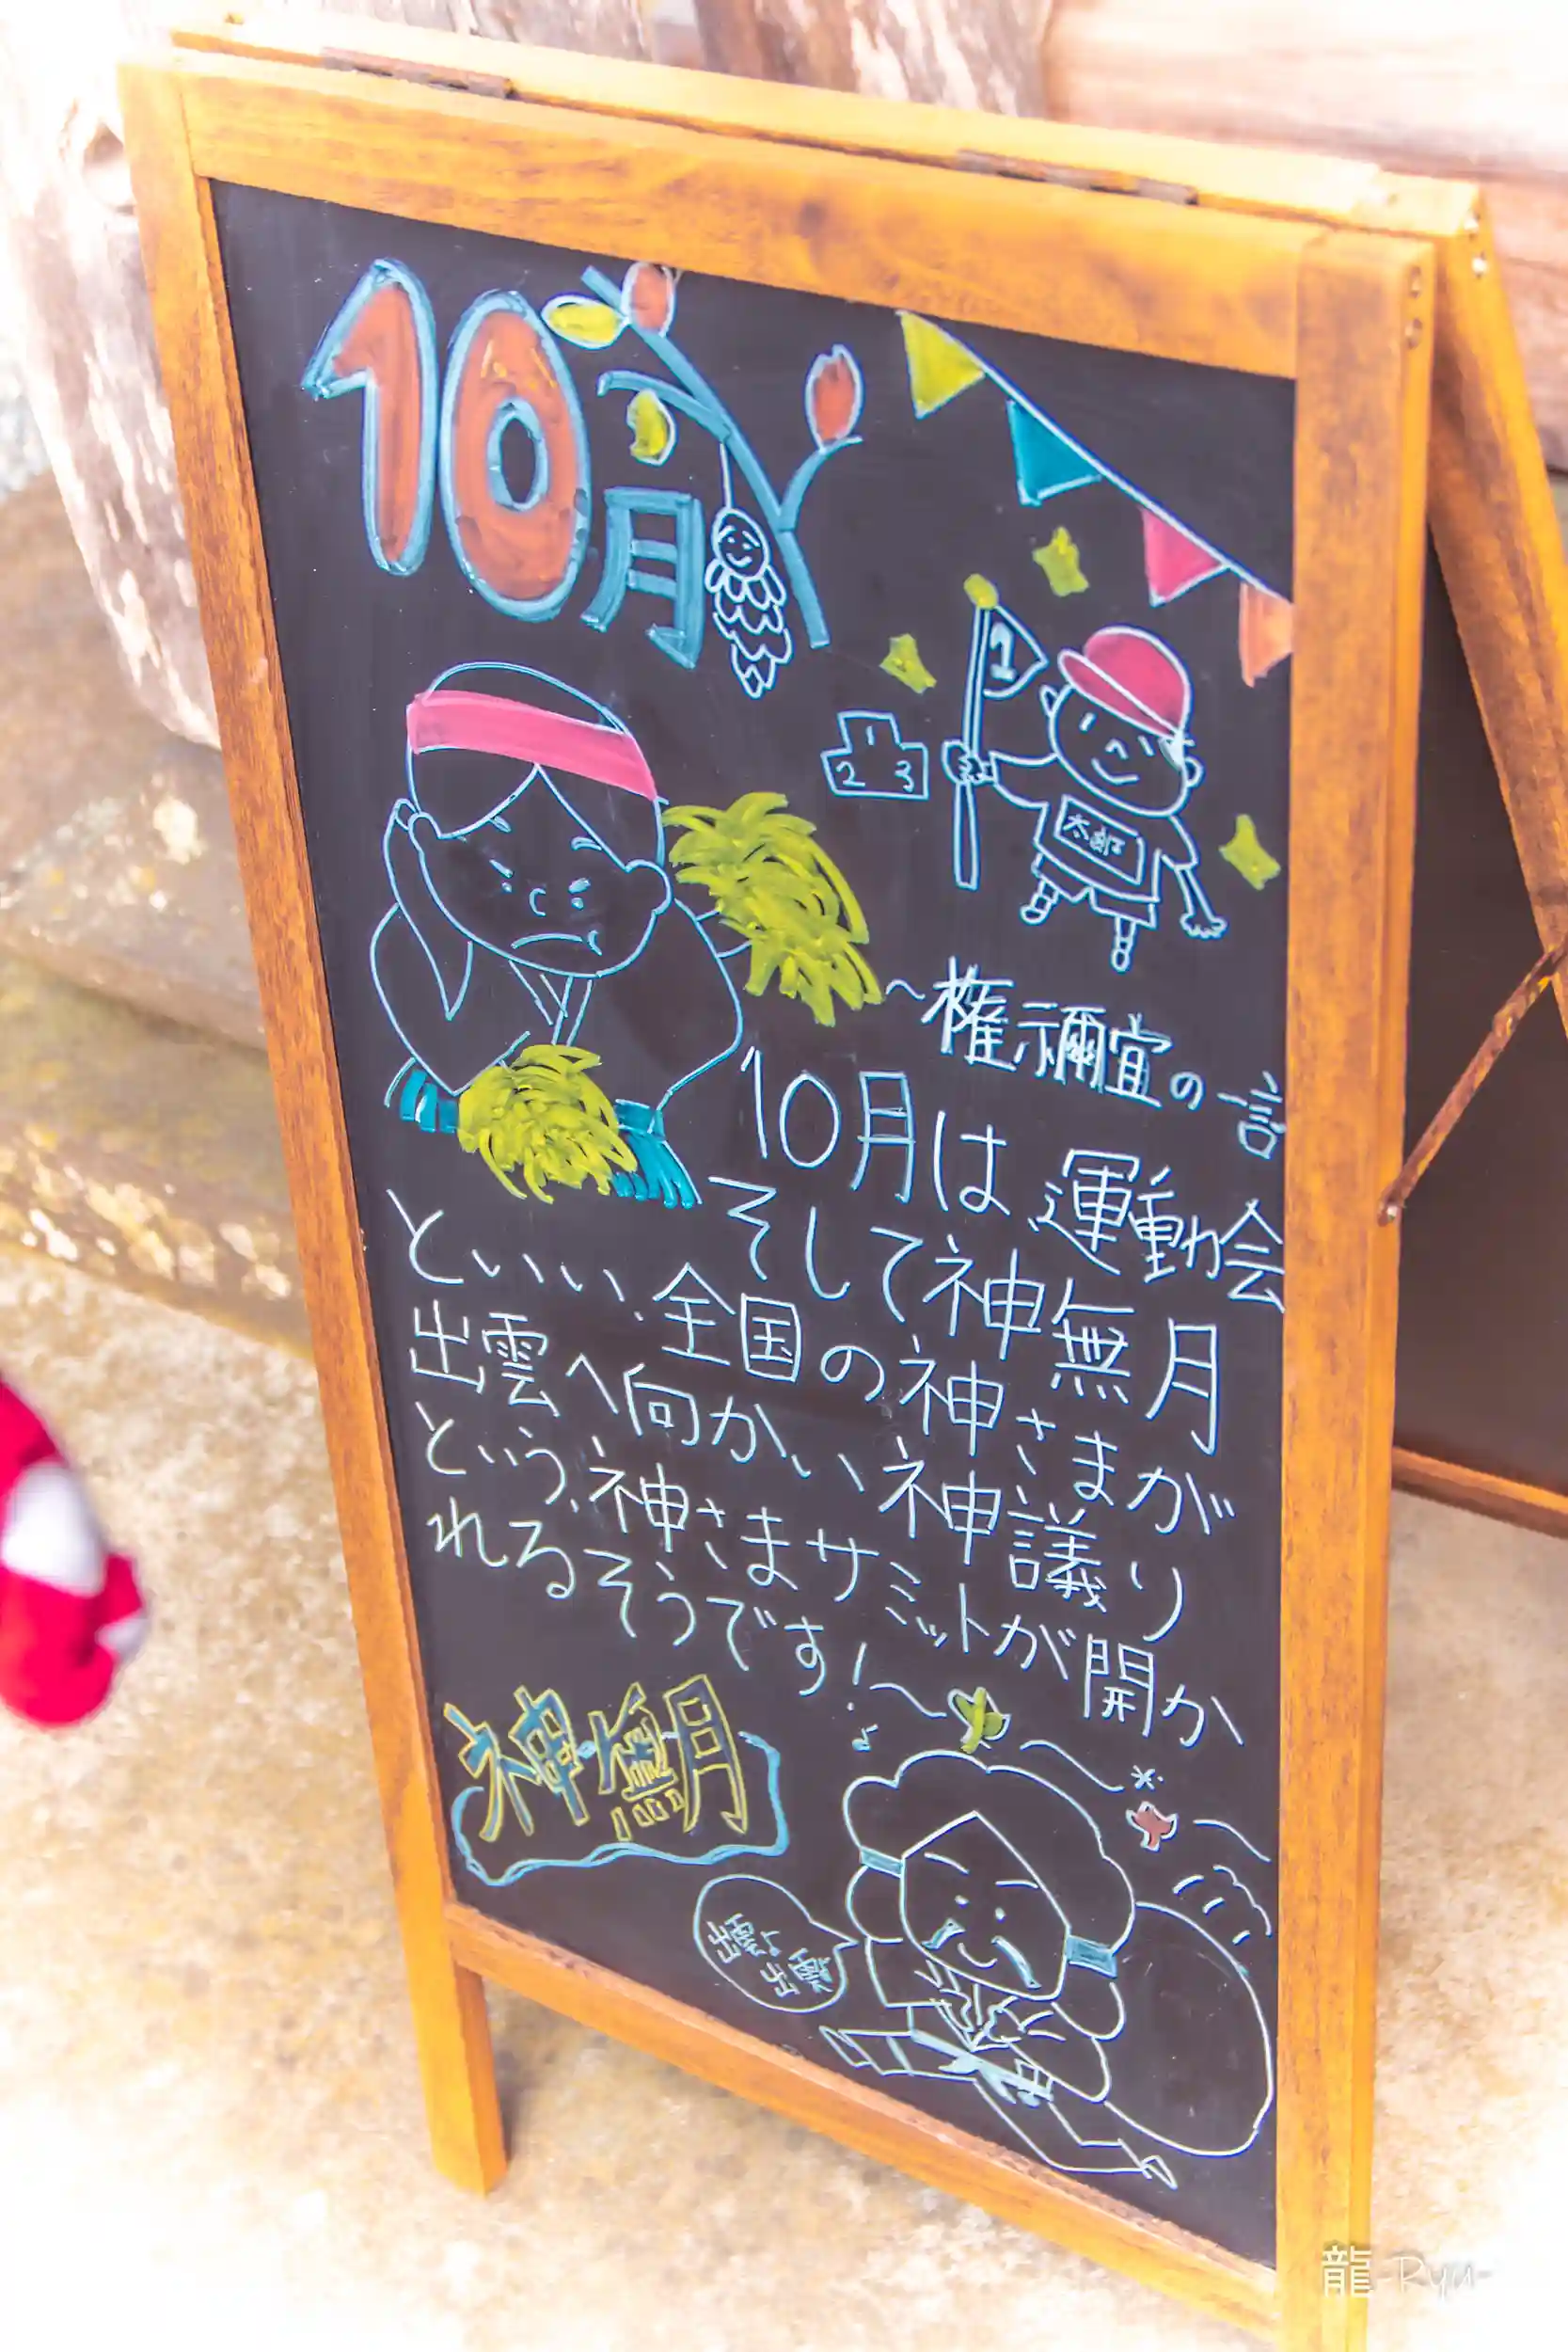 10月
1
1
2 3
太郎
〜権禰宜の言
10月は運動会
そして神無月
といい、全国の神さまが
出雲へ向かい神議り
という、神さまサミットが開か
れるそうです!〜
神無月
出雲よ
出雲
龍-Ryu-